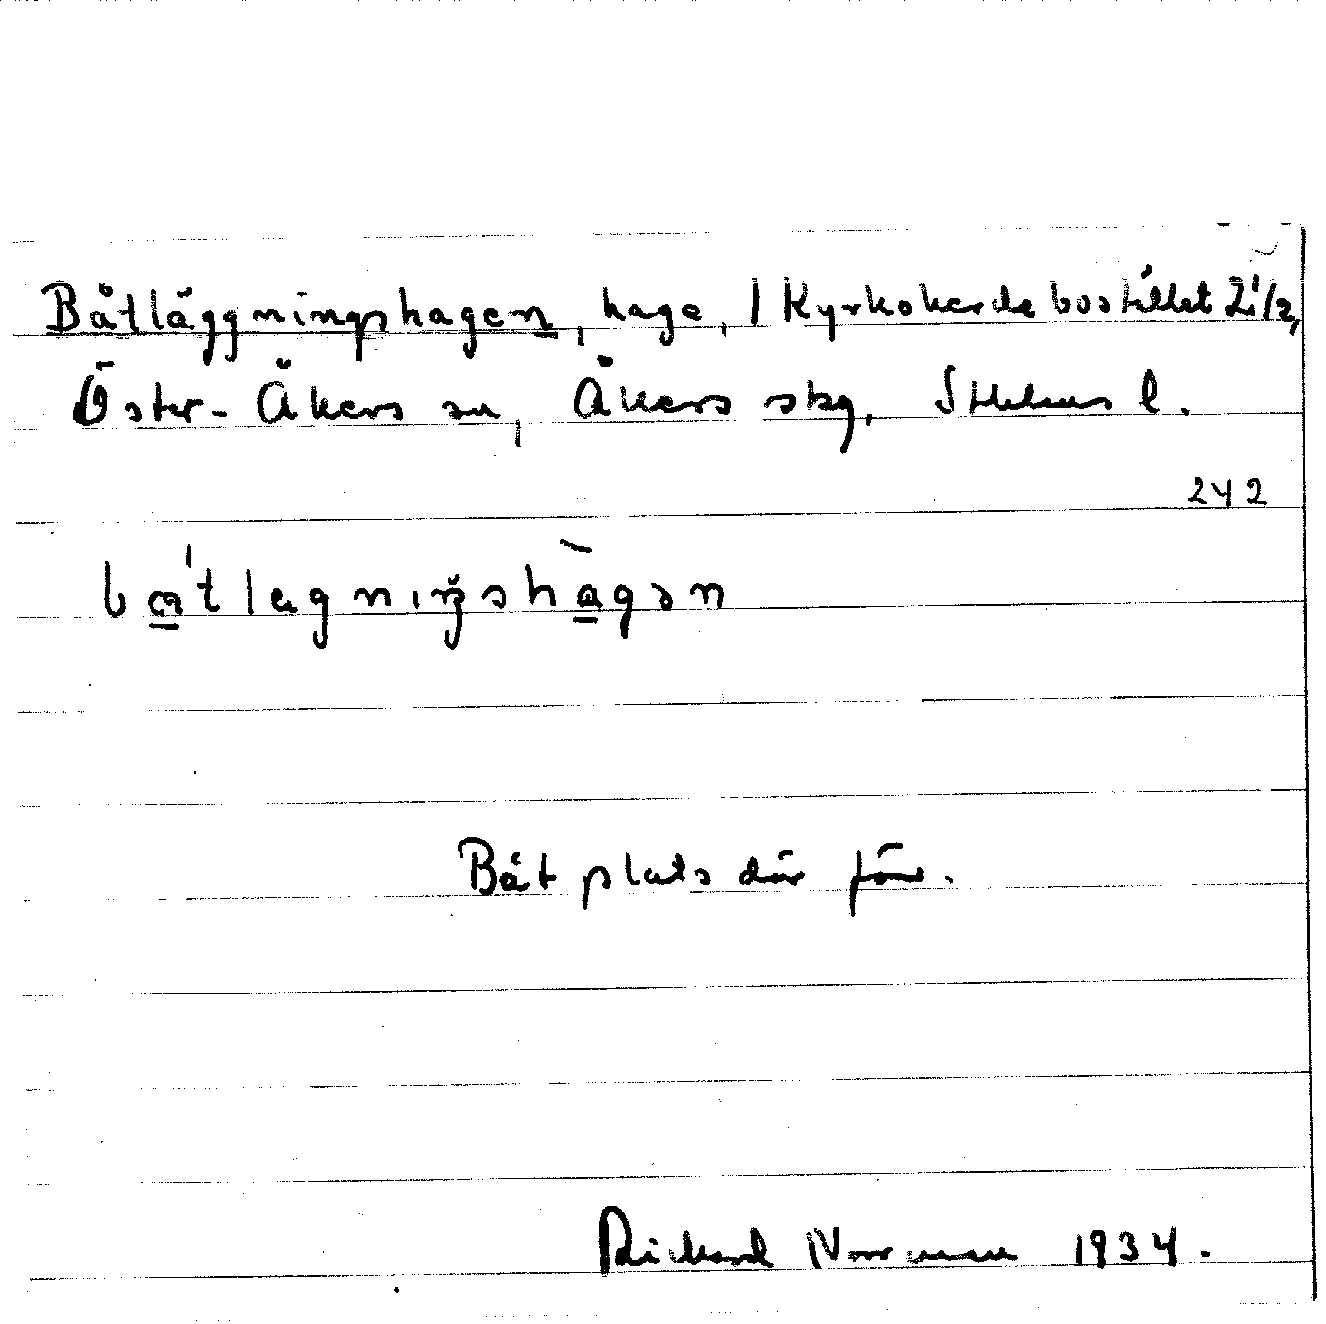 Båtläggningshagen, hage, / Kyrkoherdebostället 2 1/2,
Öster-Åkers sn, Åkers skg, Sthlms l.
242
bα̲'tlegniŋshàgən
Båtplats där förr.
Rickard Norrman 1934.